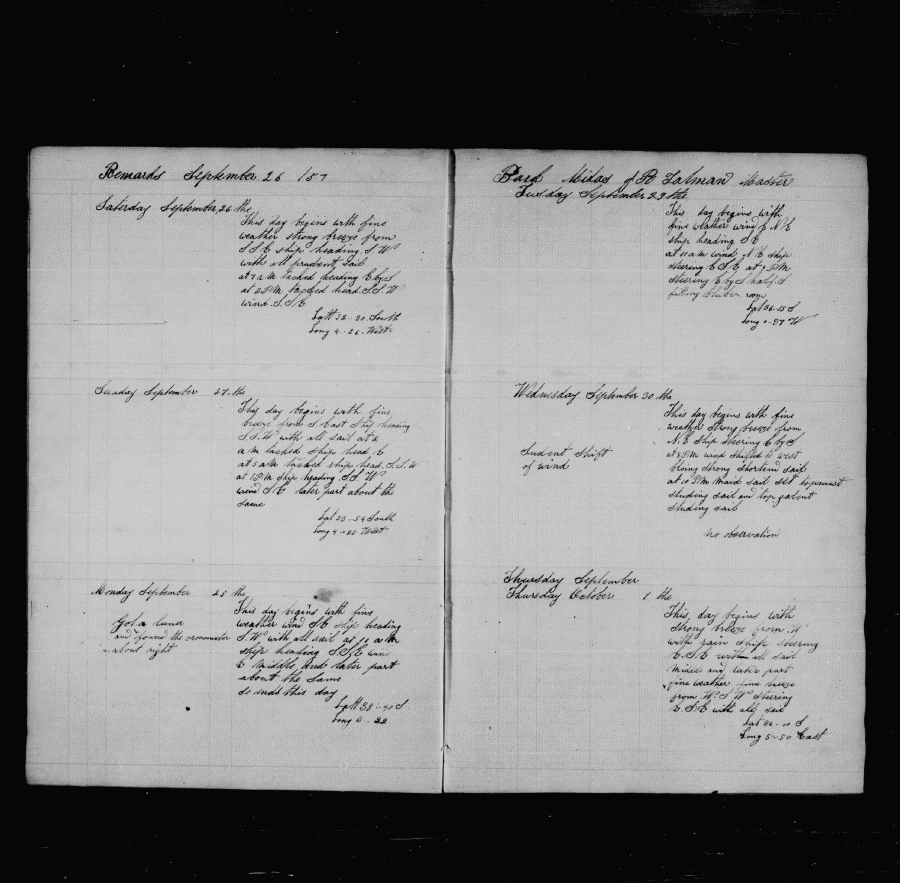 Remarks September 26 187
Saterday September 26 the
This day begins with fine
weather strong breeze from
S S E ship heading S. W
with all prudent sail
at 7 a m tacked heading E by S
at 2 P M tacked head S. S. W
wind S. S. E
Latt 32 -- 30 South
Long 4 - 26 West
Sunday September 27 the
This day begins with fine
breeze from S. East Ship heading
S. S. W with all sail at 2
a m tacked ships head E
at 5 a m tacked ship head S. S. W
at 1 P M ship heading S S W
wind S E later part about the
same
Lat 33 -- 54 South
Long 4 -- 28 West
Monday September 28 the
Got a luner
and found the cronometer
about right
This day begins with fine
weather wind S E ship heading
S. W with all sail at 11 a m
ship heading S S E win
E Middle and later part
about the same
So ends this day
Latt 35 -- 40 S
Long 3 -- 32
Bark Midas of R Talman Master
Tusday September 29 the
This day begins with
fine weather wind E N E
ship heading S E
at 11 a m wind N E ship
steering E S E at 7 P M
steering E by S half S
blubber room
Lat 36 - 15 S
Long 0 - 37 W
Wednesday September 30 the
Sudent Shift
of wind
This day begins with fine
weather Strong breeze from
N. E ship steering E by S
at 8 P M wind shifted to west
bloing strong shortend sail
at 10 P M maid sail set topmast
studing sail and top galent
studing sail
no observation
Thursday September
Thursday October 1 the
This day begins with
strong breeze from W
with rain ship steering
E. S E with all sail
Midle and later part
fine weather fine breeze
from W. S W steering
E. S E with all sail
Lat 36 - S
Long 5 -- 50 East